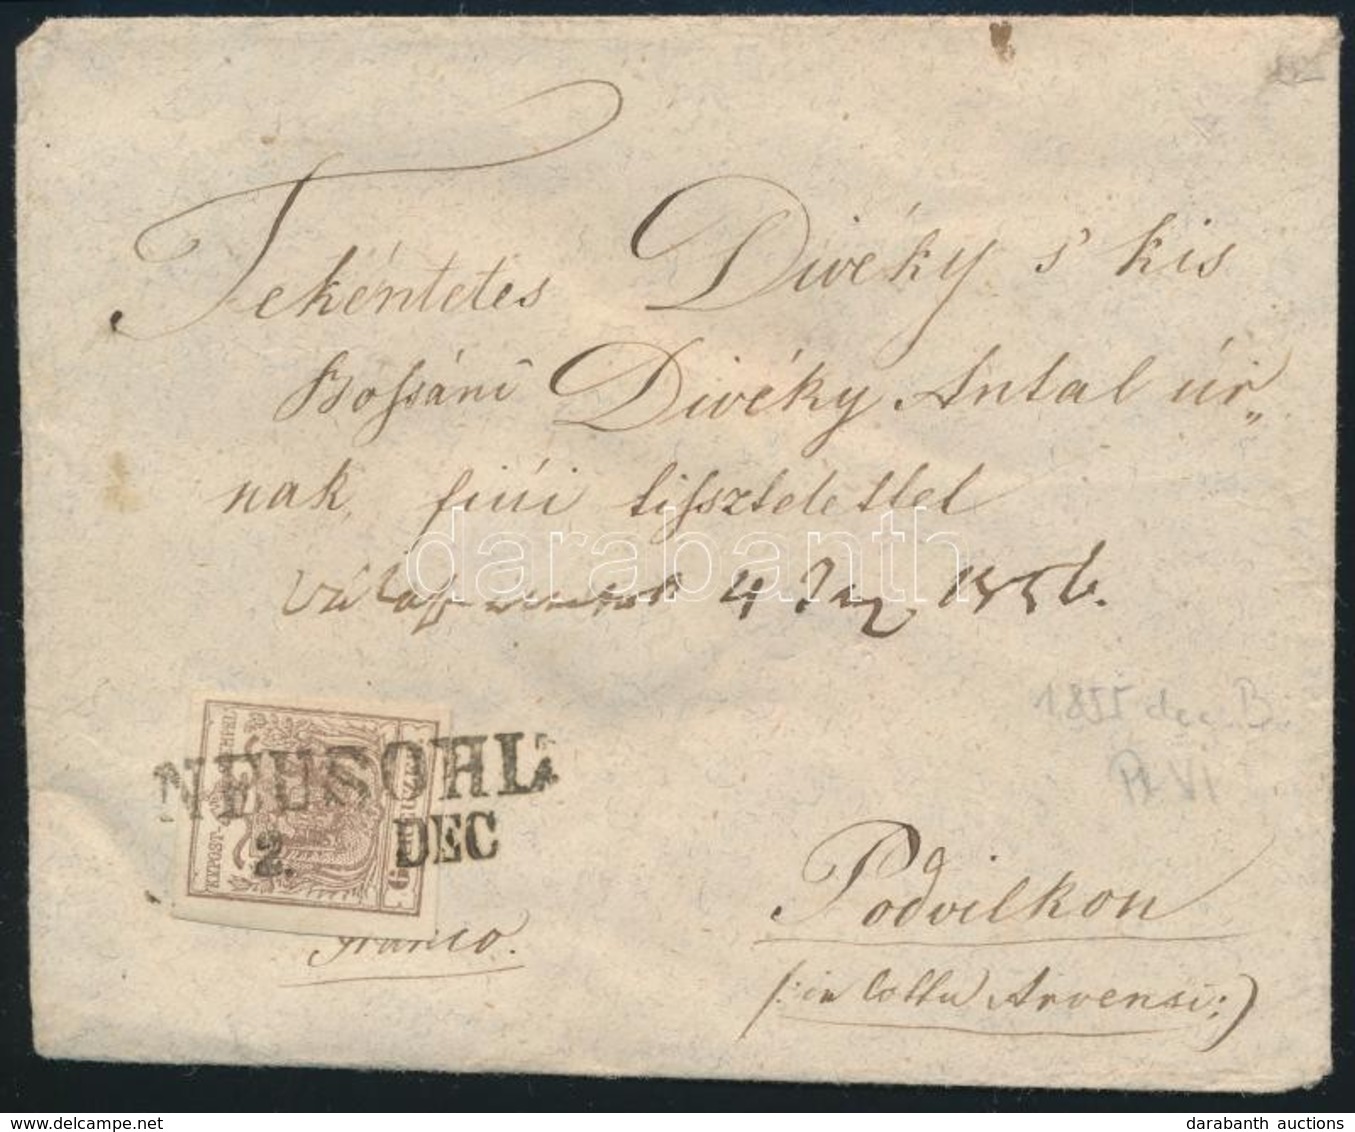 Tekéntetes Divéky s' kis
Bossáni Divéky Antal úr„
nak, fiúi tisszteletlel
darabanth
4 Jan 1856.
1855 dec
NEUSOHL
2. DEC
KKPOST-STEMPEL
6 KREUZER
Pl VI
Franco.
Podvilkon
(: in Cottu Arvensi :)
www.delcampe.net
darabanth auctions